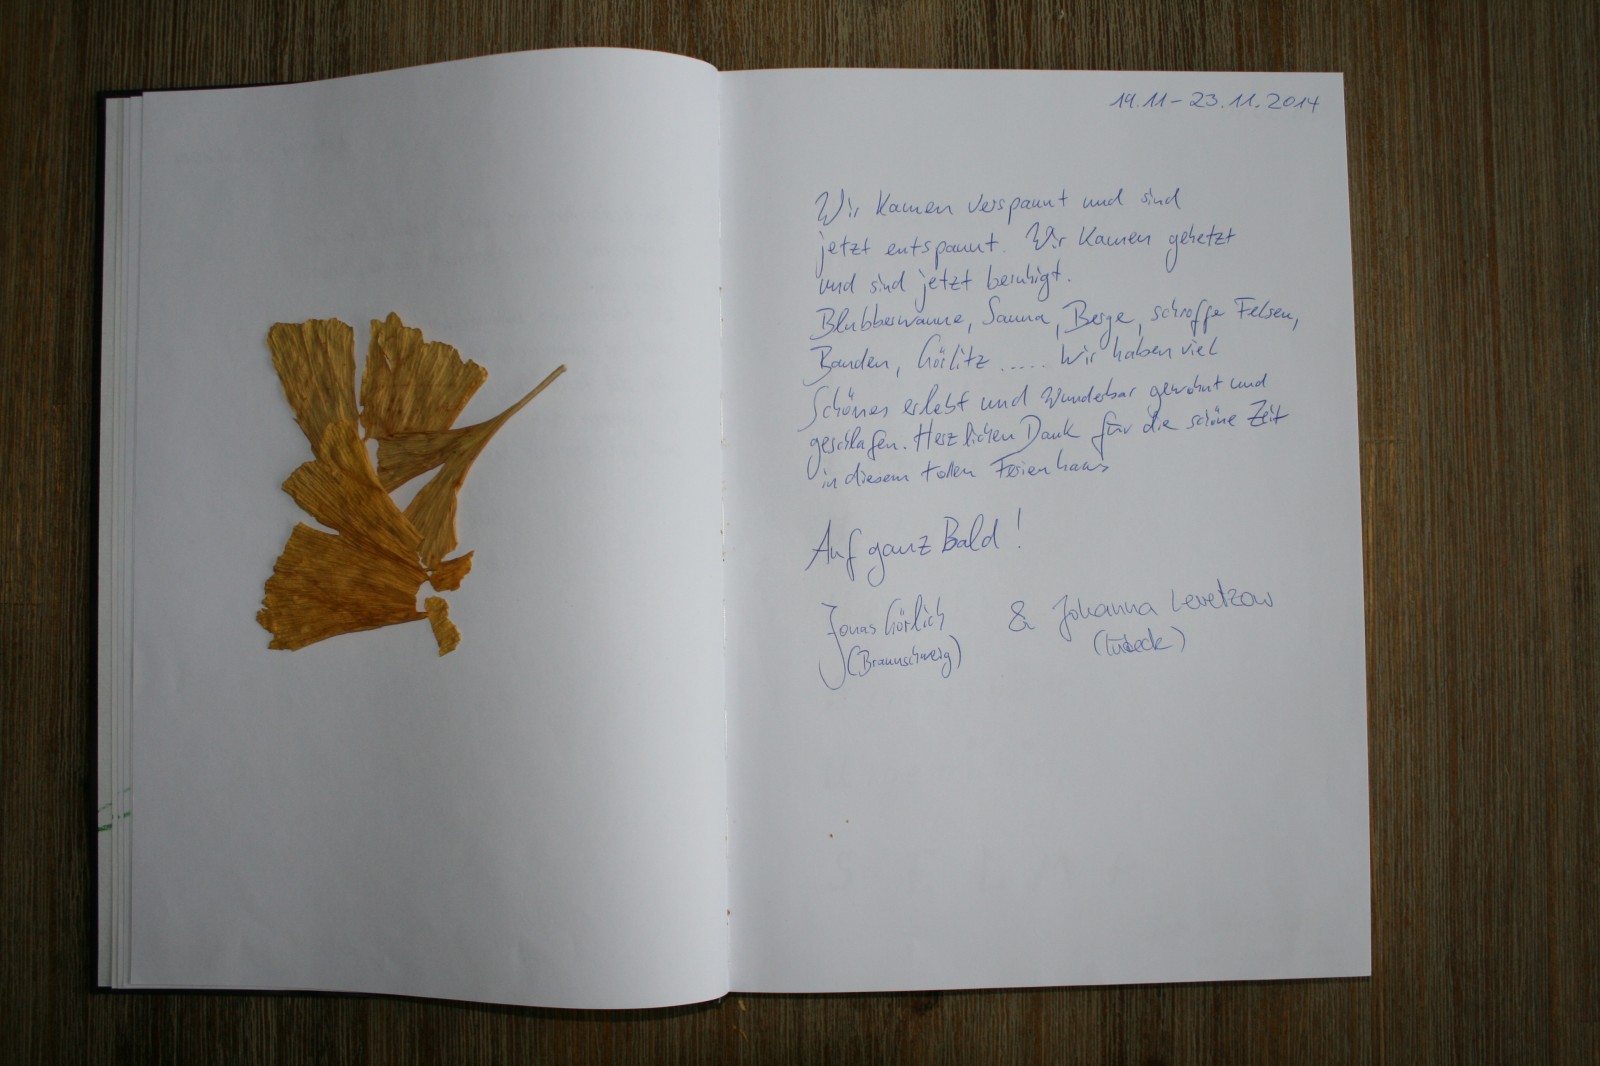 19.11 - 23.11.2014
Wir kamen verspannt und sind
jetzt entspannt. Wir kamen gehetzt
und sind jetzt beruhigt.
Blubberwanne, Sauna, Berge, schroffe Felsen,
Bauden, Görlitz ..... Wir haben viel
Schönes erlebt und Wunderbar gewohnt und
geschlafen. Herzlichen Dank für die schöne Zeit
in diesem tollen Ferienhaus
Auf ganz Bald!
Jonas Görlich & Johanna Levetzow
(Braunschweig) (Lübeck)